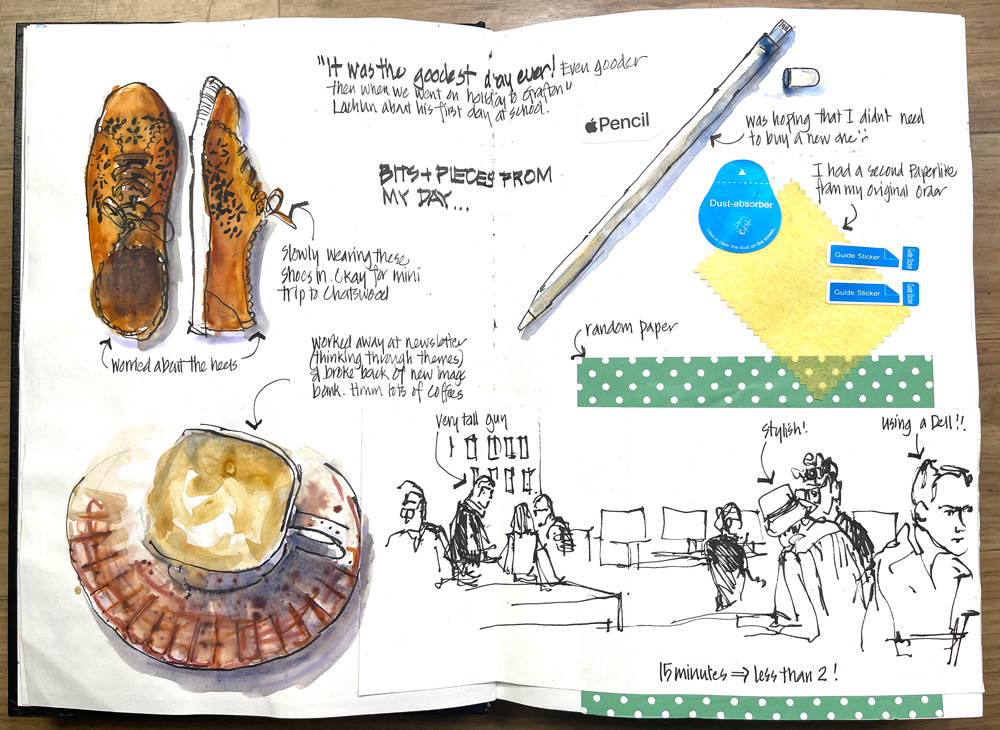 "It was the goodest day ever! Even gooder
then when we went on holiday to Grafton"
Lachlan about his first day at school.
BITS + PIECES FROM
MY DAY...
slowly wearing these
shoes in. Okay for mini
trip to Chatswood
worried about the heels
worked away at newsletter
(thinking through themes)
& broke back of new image
bank. Hmm lots of coffees
Pencil
was hoping that I didn't need
to buy a new one
I had a second Paperlike
from my original order
Dust-absorber
Used to clear the dust on the screen.
Guide Sticker
Guide Sticker
Guide Sticker
Guide Sticker
random paper
very tall guy
stylish!
using a Dell!!
15 minutes ⇒ less than 2!